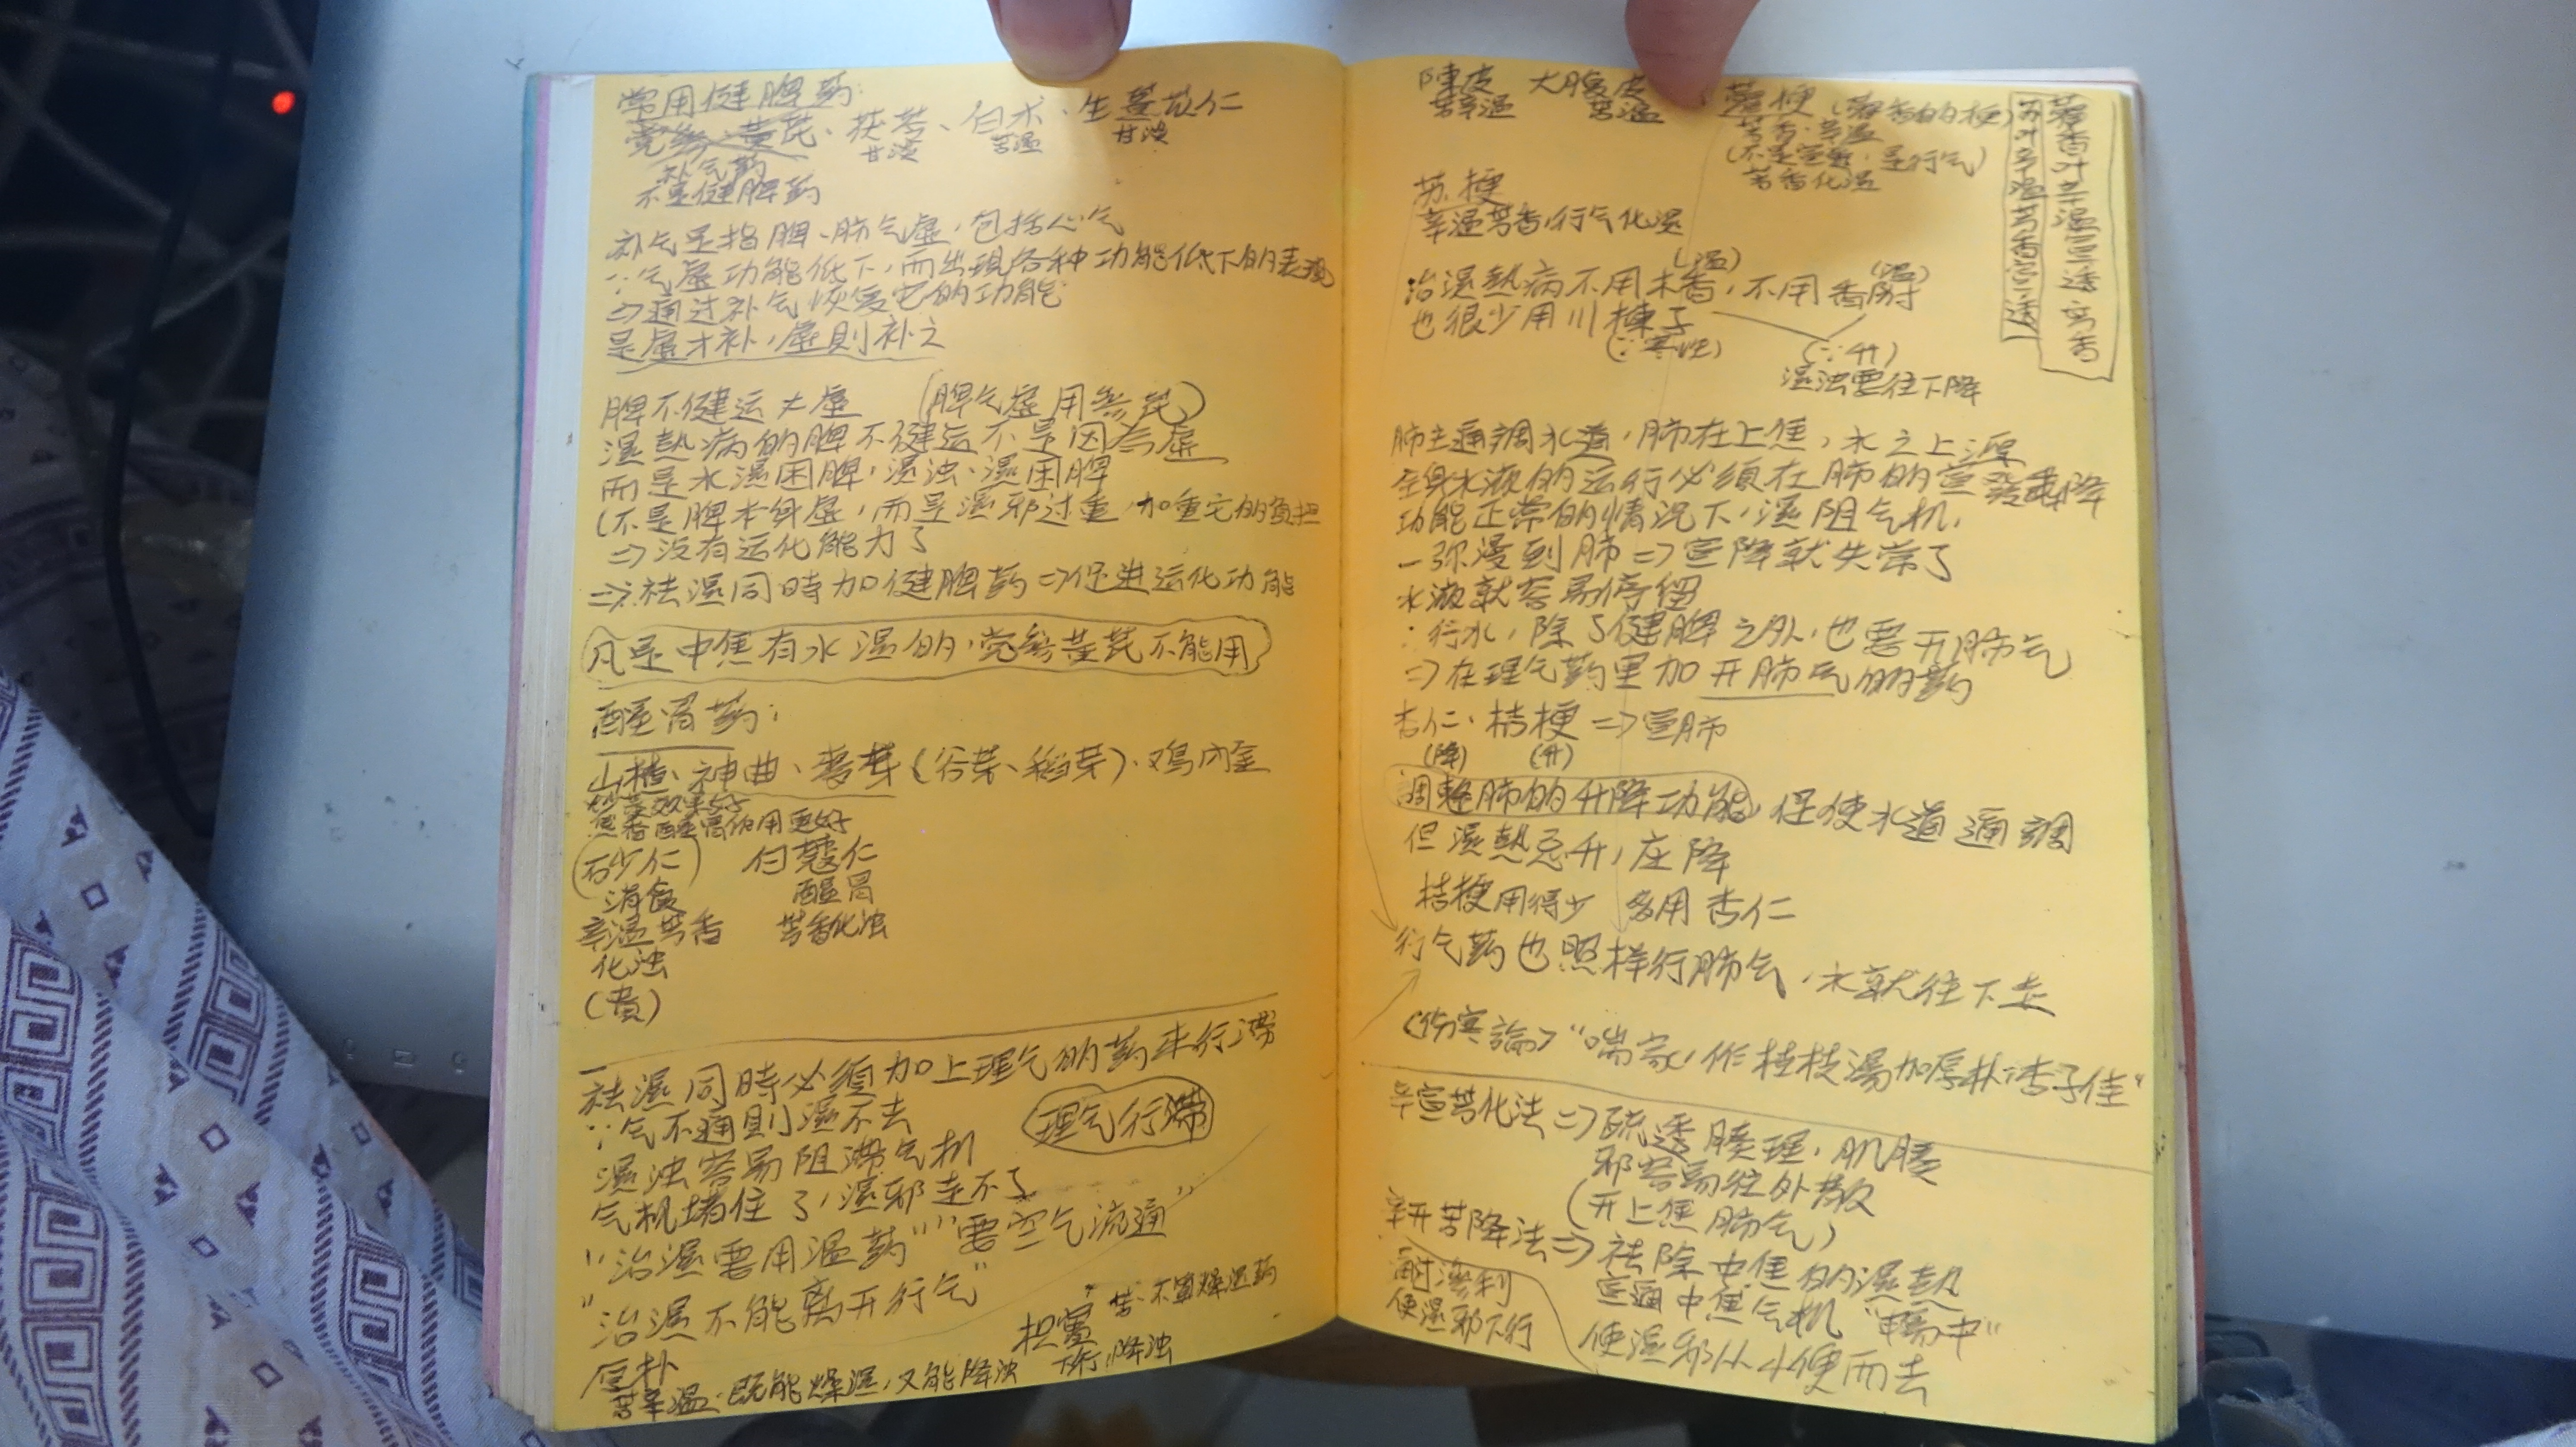 常用健脾药:
党参、黄芪、茯苓、白术、生薏苡仁
甘淡 苦温 甘淡
补气药
不是健脾药
补气是指脾、肺气虚,包括心气
∵气虚功能低下,而出現各种功能低下的表現
⇒通过补气恢复它的功能
是虚才补,虚則补之
脾不健运大虚 (脾气虚用參芪)
濕熱病的脾不健运不是因气虚
而是水濕困脾,濕浊、濕困脾
(不是脾本身虚,而是濕邪过重,加重它的負担
⇒没有运化能力了
⇒∴祛濕同時加健脾药⇒促进运化功能
凡是中焦有水濕的,党參黄芪不能用
醒胃药:
山楂、神曲、麦芽(谷芽、稻芽)、鸡内金
炒焦效果好
焦香醒胃作用更好
(砂仁) 白蔻仁
消食 醒胃
辛温芳香 芳香化浊
化浊
(貴)
祛濕同時必須加上理气的药来行滞
∵气不通則濕不去 理气行滞
濕浊容易阻滞气机
气机堵住了,濕邪走不了
"治濕要用温药""要空气流通"
"治濕不能离开行气"
厚朴 枳實 苦、不算燥濕药
苦辛温、既能燥濕,又能降浊 下行,降浊
陳皮 大腹皮 藿梗(藿香的梗)
苦辛温 苦温 芳香、辛温
(不是宣透,是行气)
芳香化濕
藿香叶辛温宣透芳香
苏叶辛温芳香宣透
苏梗
辛温芳香,行气化濕
治濕熱病不用木香(温),不用香附(温)
也很少用川楝子
(∵寒性) (∵升)
濕浊要往下降
肺主通調水道,肺在上焦,水之上源
全身水液的运行必須在肺的宣發肅降
功能正常的情况下,濕阻气机,
一弥漫到肺⇒宣降就失常了
水液就容易停留
∴行水,除了健脾之外,也要开肺气
⇒在理气药里加开肺气的药
杏仁、桔梗⇒宣肺
(降) (升)
調整肺的升降功能,促使水道通調
但濕熱忌升,应降
桔梗用得少 多用杏仁
行气药也照样行肺气,水就往下走
《伤寒論》"喘家,作桂枝湯加厚朴杏子佳"
辛宣芳化法⇒疏透腠理,肌膚
邪容易往外散
(开上焦肺气)
辛开苦降法⇒祛除中焦的濕熱
宣通中焦气机 "暢中"
淡滲利
使濕邪下行 使濕邪从小便而去